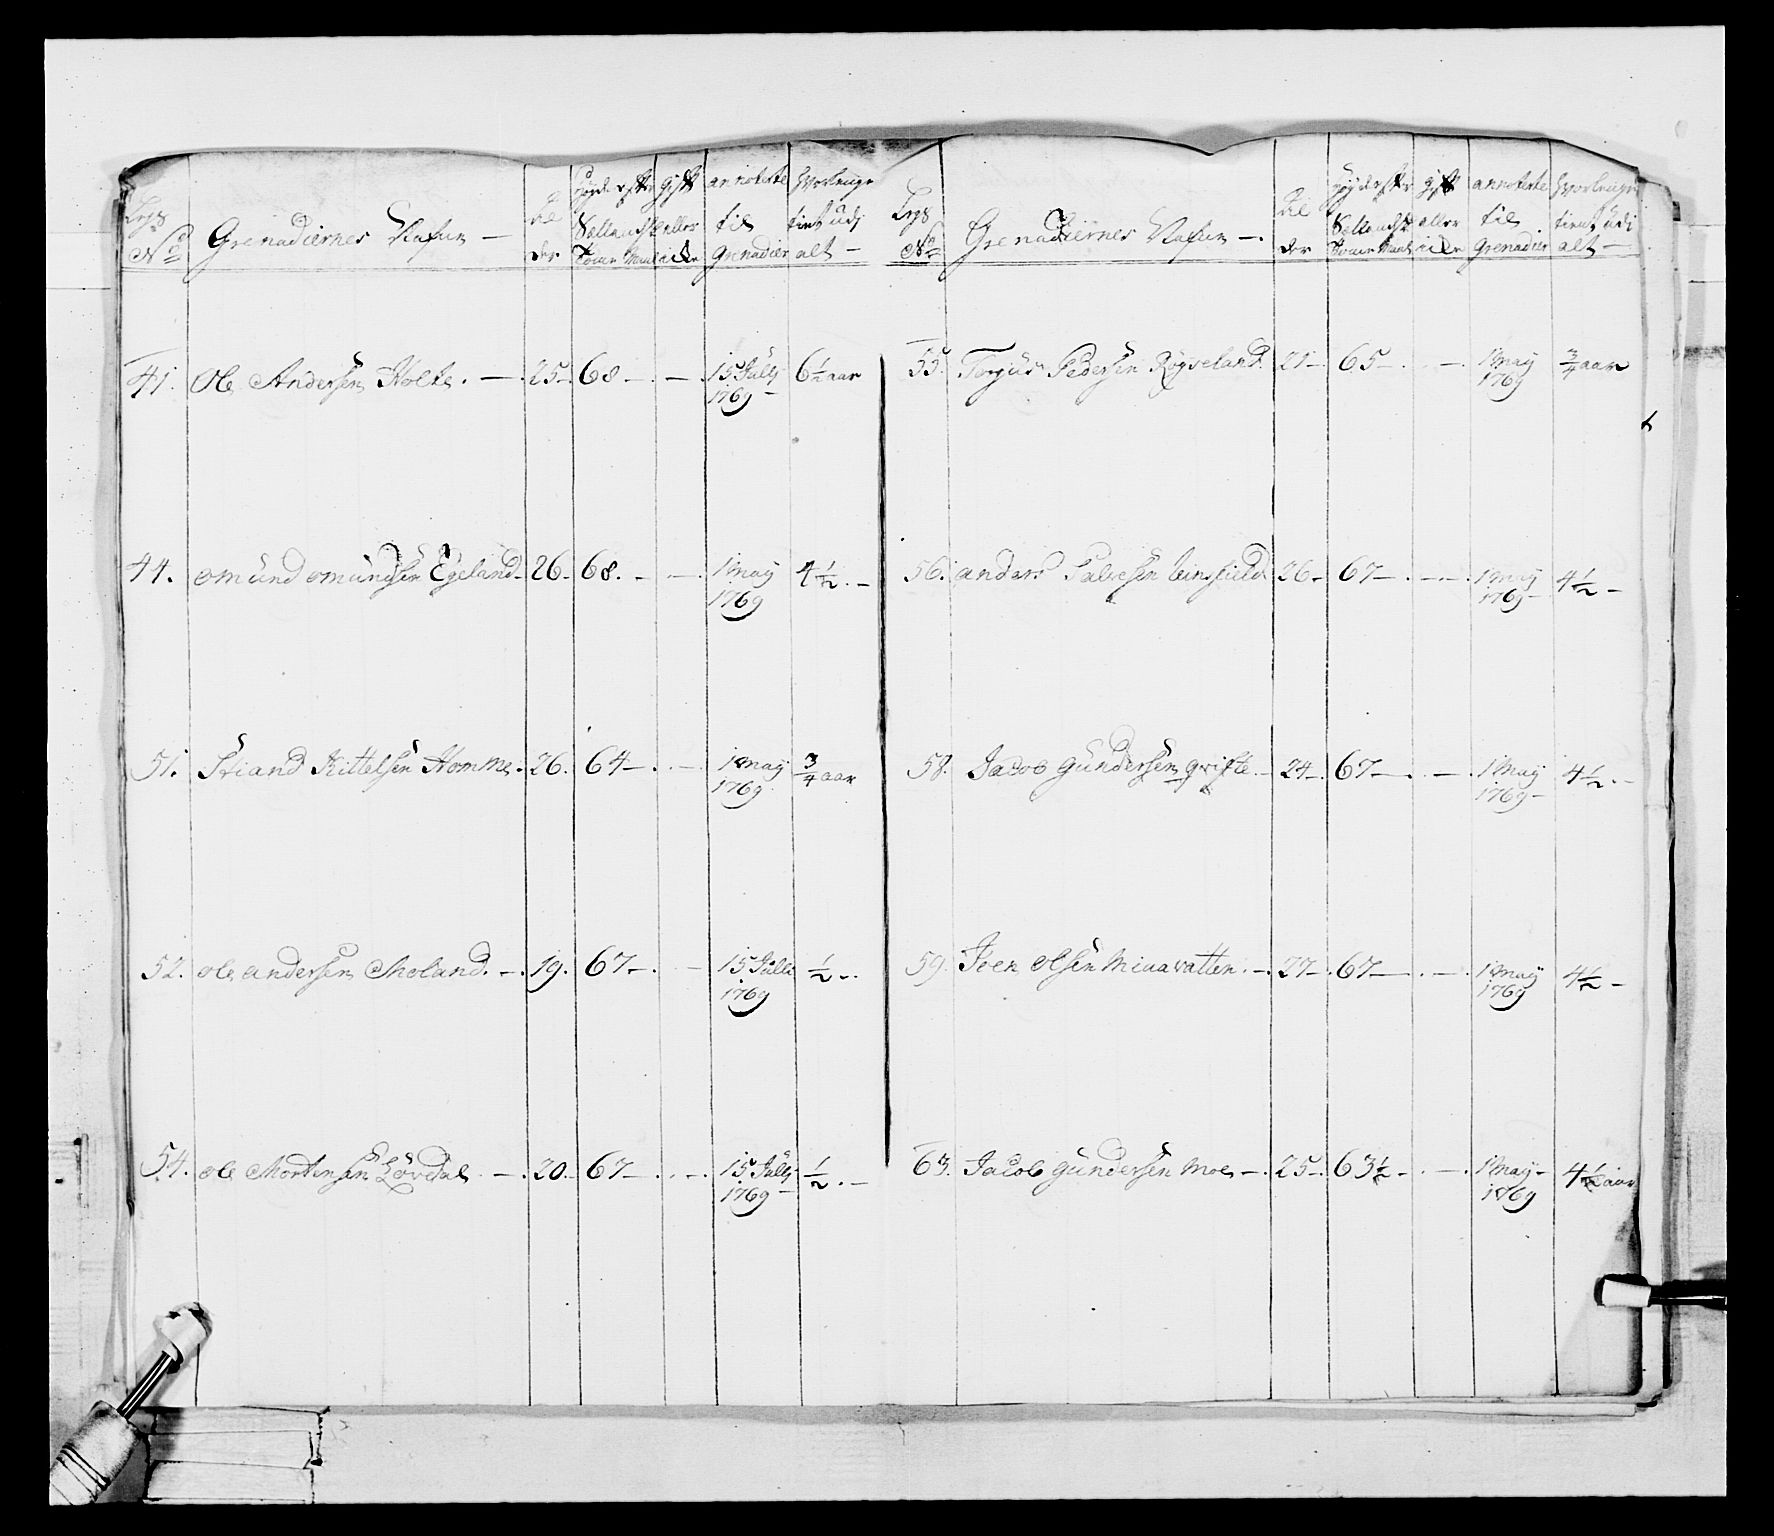 Lægs No Grenadiernes Nafun — Al der Høyde efter Siellandsk Tome Maal gift eller ide annoterte til Grenadier Hvorlenge tient udj alt —
41. Ole Andersen Holte. — 25 — 68 — . — 15 July 1769 — 6½ aar
44. omund omundsen Egeland — 26 — 68. — . — 1 May 1769 4½ . —
51. Stiand Kittelsen Homme. 26. 64 — . — 1 May 1769 ¾ aar
52. ole andersen Moland. — . 19. 67 — . — 15 Julli 1769 ½ — .
54. ole Mortensen Lövdal. — . 20. 67 — . . — 15 July 1769 — ½ . —
Lægs No Grenadiernes Nafun — . Al der Høyde efter Siellandsk Tome Maal gift eller ide annoterte til Grenadier Hvorlenge tient udi alt —
55. Torjus Pedersen Røyseland. 21 — 65 — . . — . 1 May 1769 ¾ aar
56. anders Salvesen 26 — 67 — . — . — . 1 May 1769 — 4½ —
58. Jacob Gundersen grifte. — 24 — . 67 — . — . 1 May 1769 — 4½ . —
59. Iven olsen Minavatten. — . 27 — . 67 — . — . 1 May 1769 4½ —
63. Jacob gundersen Moe — . 25 — . 63½ — . — . 1 May — 1769 4½ aar